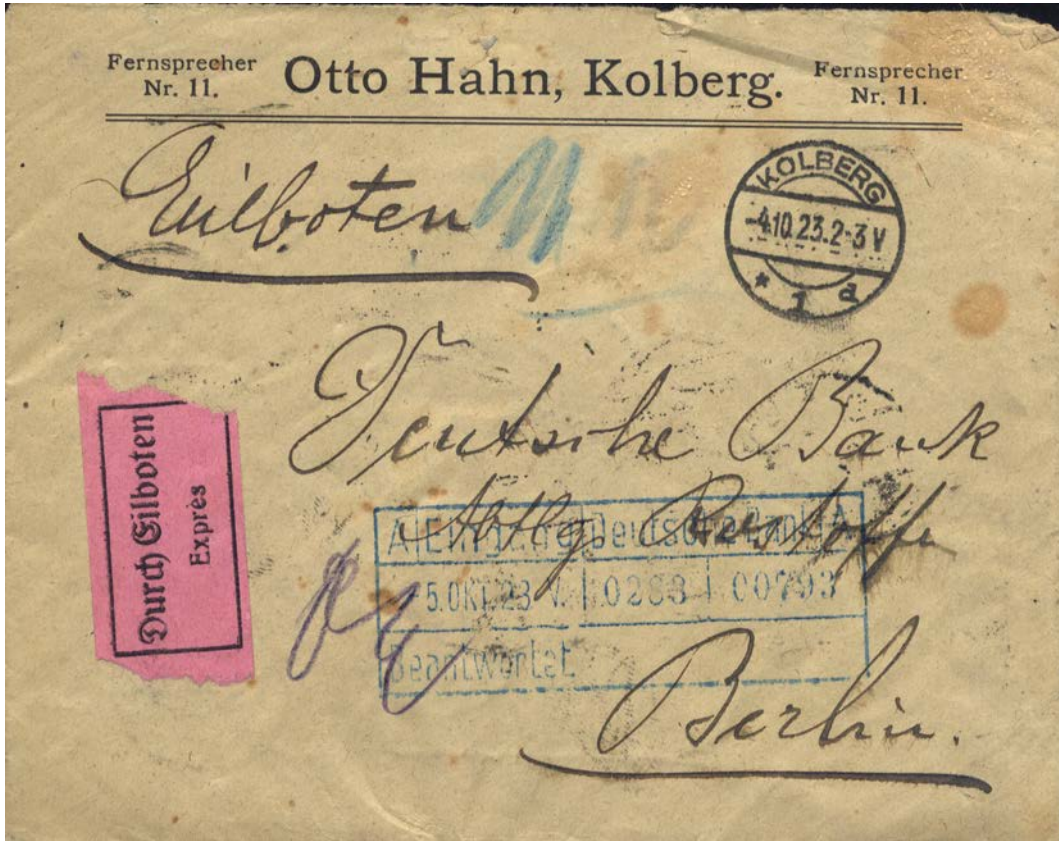 Fernsprecher
Nr. 11.
Otto Hahn, Kolberg.
Fernsprecher
Nr. 11.
Eilboten
KOLBERG
-4.10.23.2-3 V
* 1 a
Durch Eilboten
Exprès
Deutsche Bank
Abtlg
Berlin.
A Deutsche Bank A
-5.OKT.23 V. 0283 00793
Beantwortet